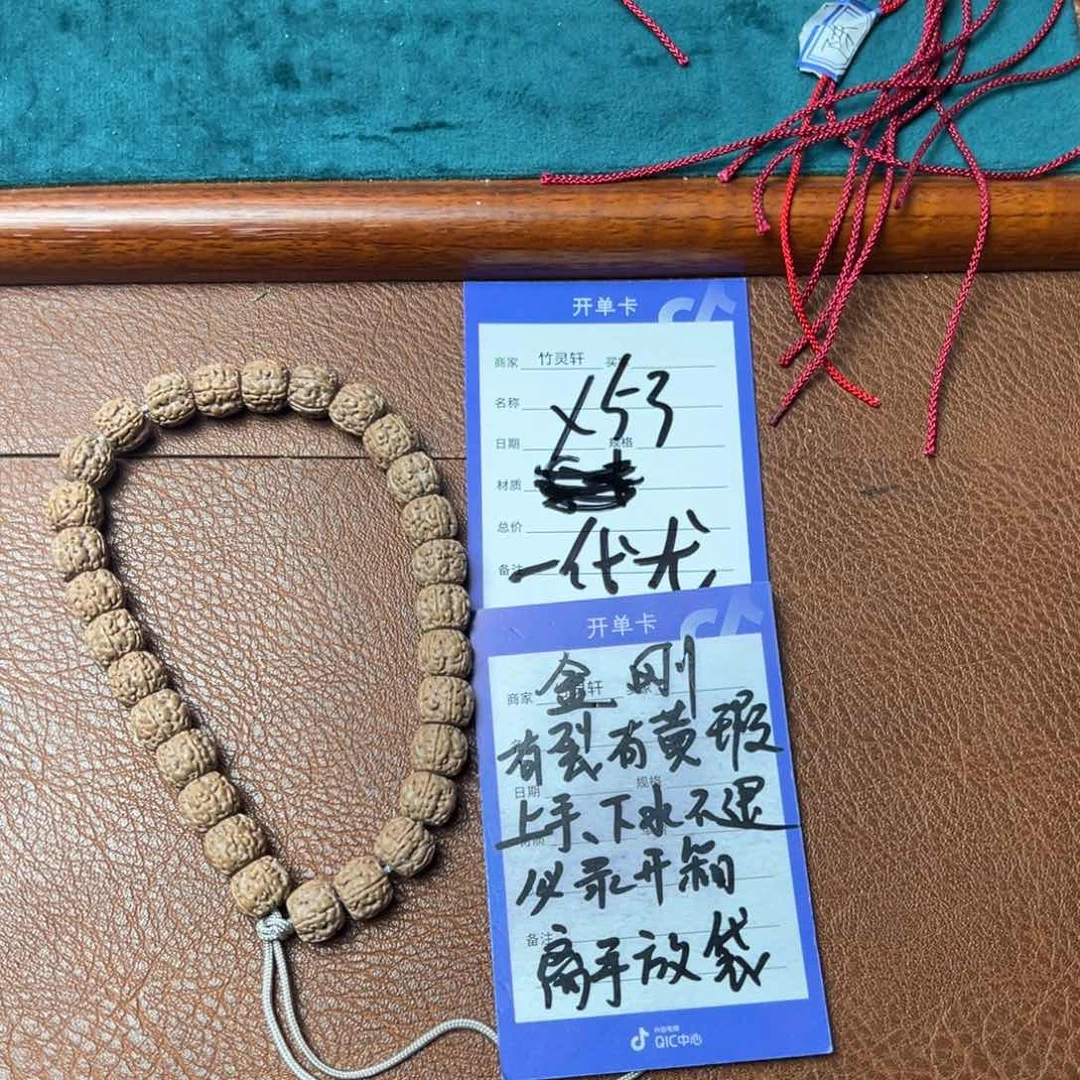 开单卡
商家 竹灵轩 买家
X53
名称
日期 规格
材质
总价
一代尤
备注
开单卡
金刚
商家 轩 买家
有裂有黄瑕
日期 规格
上手、下水不退
材质
必录开箱
备注
离手放袋
QIC中心